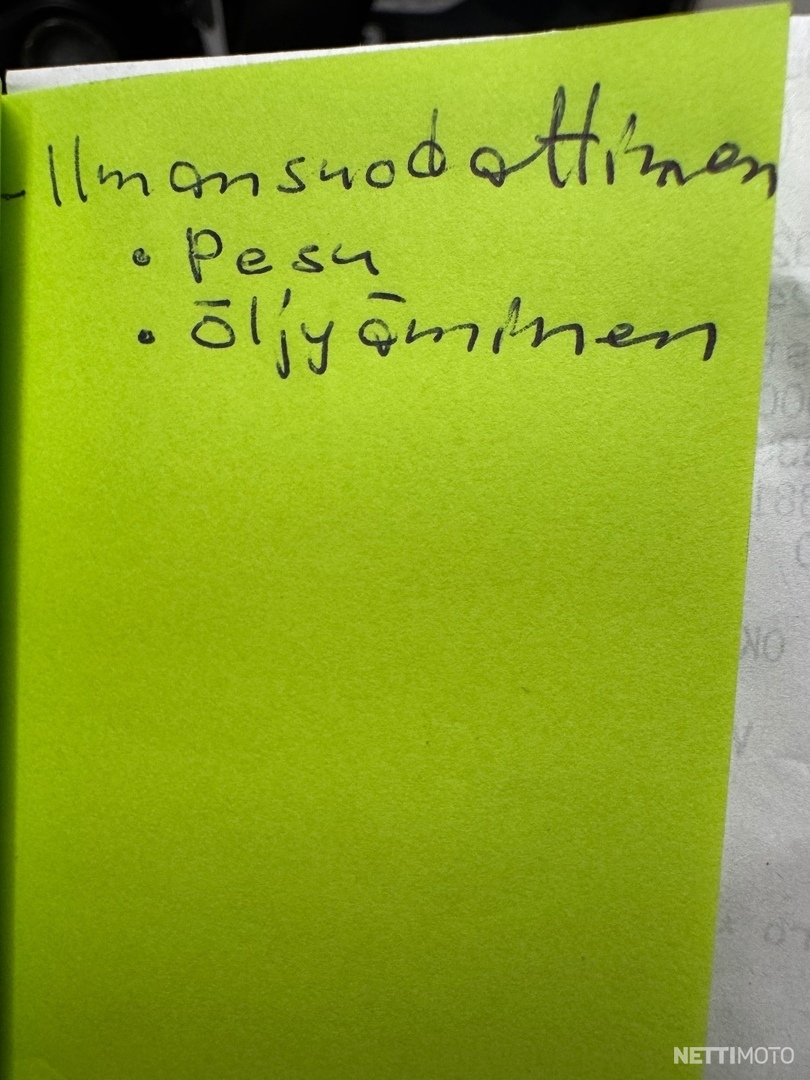 - Ilmansuodattimen
• Pesu
• Öljyäminen
OK
NETTIMOTO